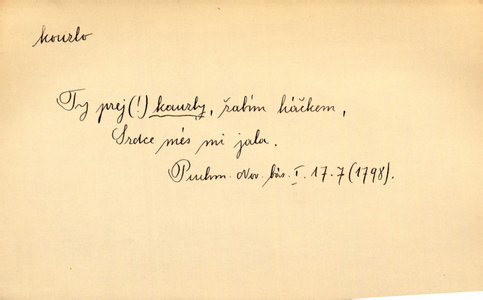 kouzlo
Ty prej(!) kauzly, žabím háčkem,
Srdce més mi jala.
Puchm. Nov. bás. I. 17.7 (1798).